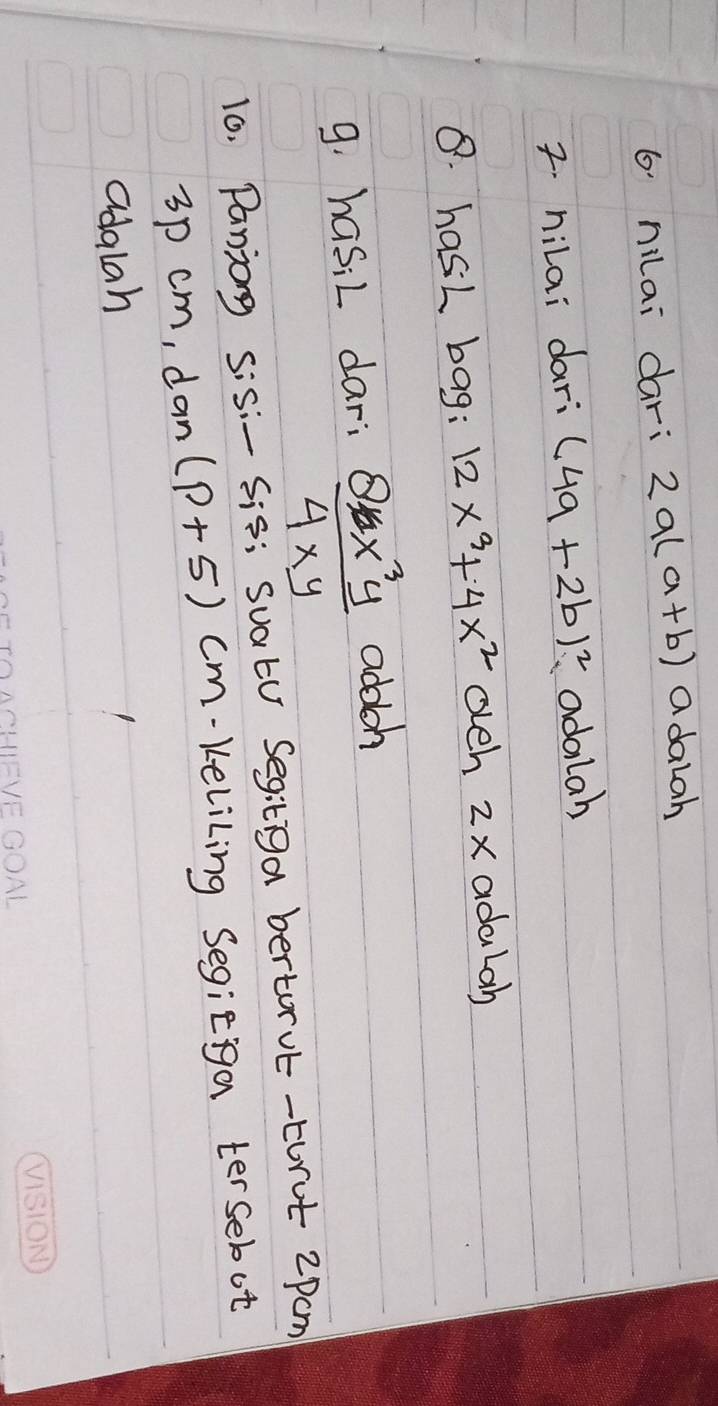 6. nilai dari 2a(a+b) adalah
7. nilai dari (4a+2b)² adalah
8. hasil bagi 12x³+4x² oleh 2x adalah
9. hasil dari 8x³y adalah
4xy
10. Panjang sisi-sisi suatu segitiga berturut-turut 2pcm
3p cm, dan (p+5) cm. keliling segitiga tersebut
adalah
TO ACHIEVE GOAL
VISION